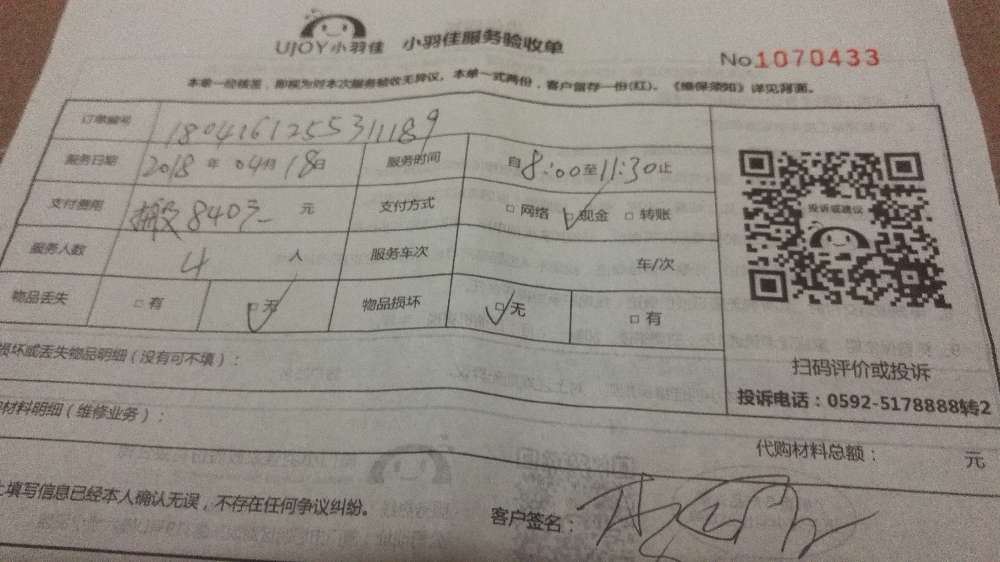 UJOY小羽佳 小羽佳服务验收单
No.1070433
本单一经签署，即视为对本次服务验收无异议，本单一式两份，客户留存一份(红)。《维保须知》详见背面。
订单编号 180416125531189
服务日期 2018 年 04月 18日 服务时间 自8:00至11:30止
支付费用 搬家840元 元 支付方式 □ 网络 □ 现金 □ 转账
服务人数 4 人 服务车次 车/次
物品丢失 □ 有 □ 无 物品损坏 □ 无 □ 有
投诉或建议
损坏或丢失物品明细（没有可不填）：
扫码评价或投诉
投诉电话：0592-5178888转2
材料明细（维修业务）：
代购材料总额： 元
上填写信息已经本人确认无误，不存在任何争议纠纷。
客户签名：